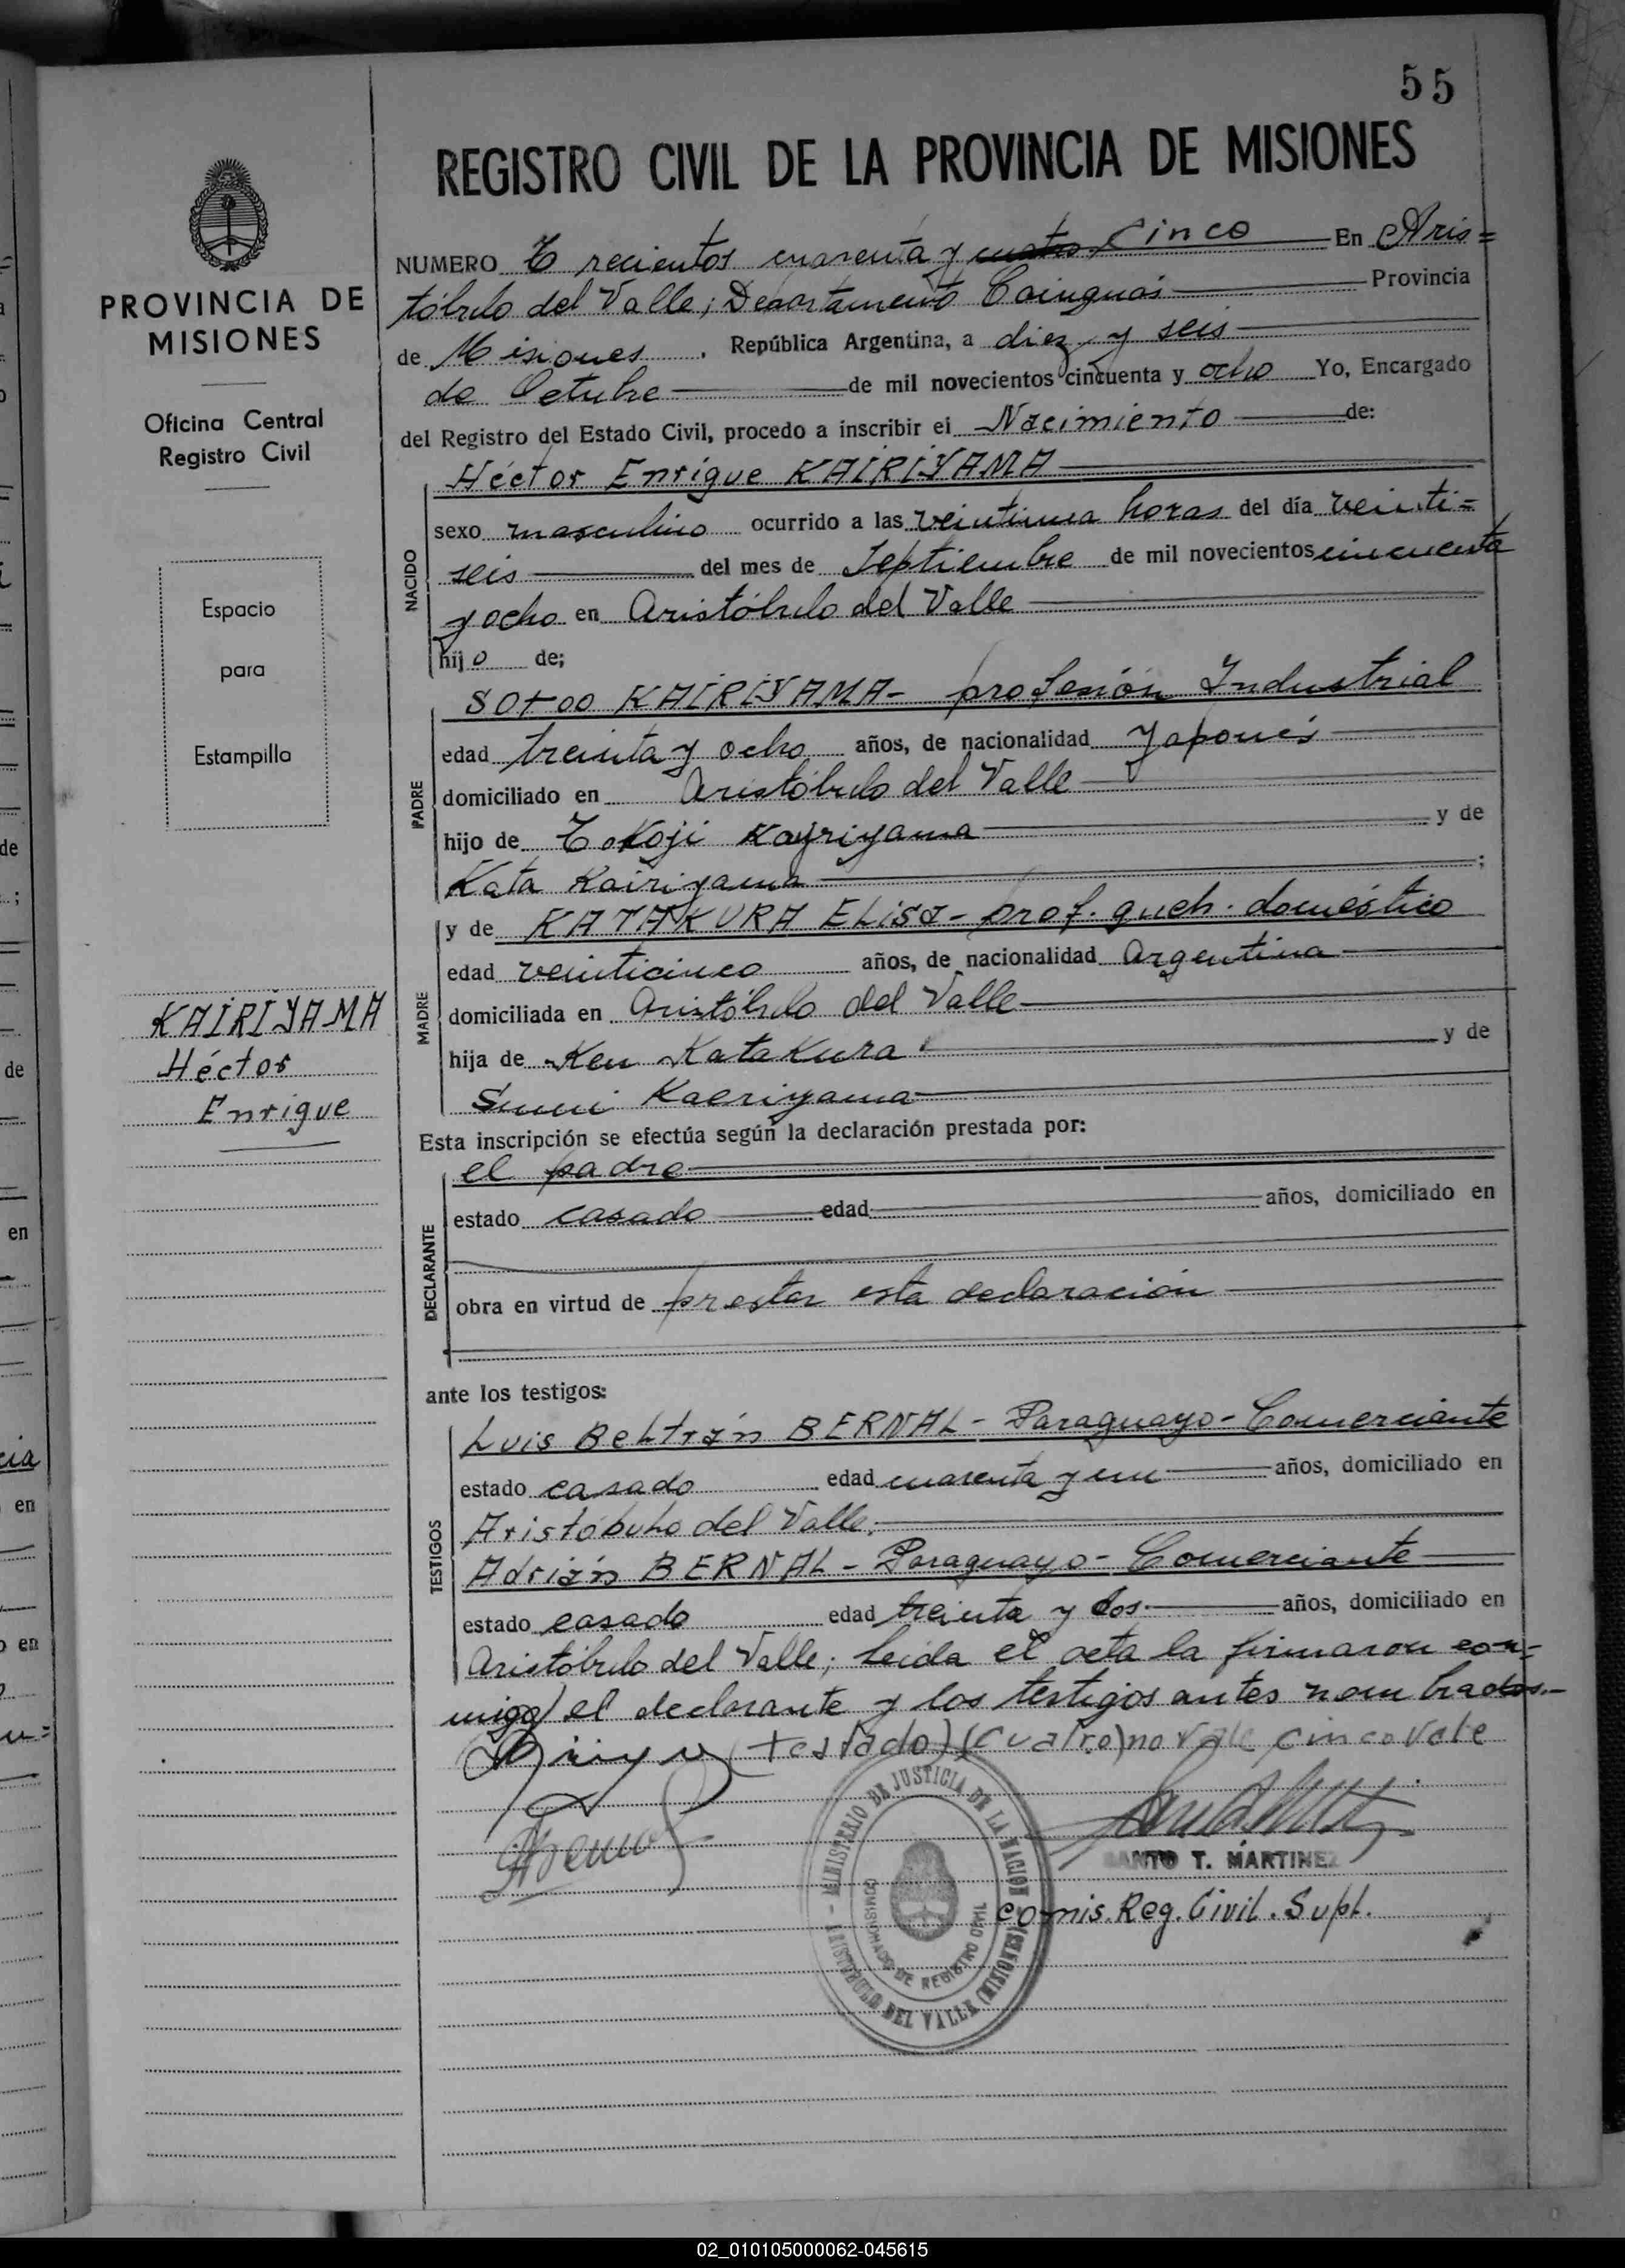 55
REGISTRO CIVIL DE LA PROVINCIA DE MISIONES
PROVINCIA DE
MISIONES
Oficina Central
Registro Civil
Espacio
para
Estampilla
KAIRIYAMA
Héctor
Enrique
NUMERO Trecientos cuarenta y cuatro cinco En Aris=
tóbulo del Valle; Departamento Cainguás Provincia
de Misiones, República Argentina, a diez y seis
de Octubre de mil novecientos cincuenta y ocho Yo, Encargado
del Registro del Estado Civil, procedo a inscribir el Nacimiento de:
Héctor Enrique KAIRIYAMA
NACIDO
sexo masculino ocurrido a las veintiuna horas del día veinti=
seis del mes de Septiembre de mil novecientos cincuenta
y ocho en Aristóbulo del Valle
hijo de;
PADRE
Sotoo KAIRIYAMA- profesión Industrial
edad treinta y ocho años, de nacionalidad Japonés
domiciliado en Aristóbulo del Valle
hijo de Tokoji Kayriyama y de
Kata Kairiyama ;
MADRE
y de KATAKURA ELisa- prof. queh. doméstico
edad veinticinco años, de nacionalidad Argentina
domiciliada en Aristóbulo del Valle
hija de Ken Katakura y de
Sumi Kaeriyama
Esta inscripción se efectúa según la declaración prestada por:
DECLARANTE
el padre
estado casado edad años, domiciliado en
obra en virtud de prestar esta declaración
ante los testigos:
TESTIGOS
Luis Beltrán BERNAL- Paraguayo- Comerciante
estado casado edad cuarenta y un años, domiciliado en
Aristóbulo del Valle.
Adrián BERNAL- Paraguayo- Comerciante
estado casado edad treinta y dos años, domiciliado en
Aristóbulo del Valle; leida el acta la firmaron con-
migo el declarante y los testigos antes nombrados.-
testado) (cuatro) no vale, cinco vale
MINISTERIO DE JUSTICIA DE LA NACION
ARISTOBULO DEL VALLE (MISIONES)
COMISIONADO DE REGISTRO CIVIL
SANTO T. MARTINEZ
comis. Reg. Civil. Supl.
02_010105000062-045615